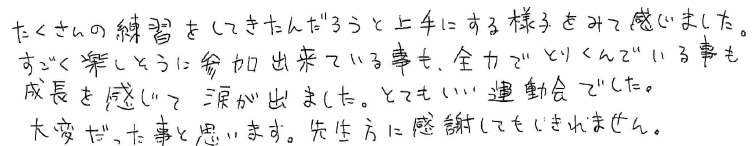 たくさんの練習をしてきたんだろうと上手にする様子をみて感じました。
すごく楽しそうに参加出来ている事も、全力でとりくんでいる事も
成長を感じて涙が出ました。とてもいい運動会でした。
大変だった事と思います。先生方に感謝してもしきれません。